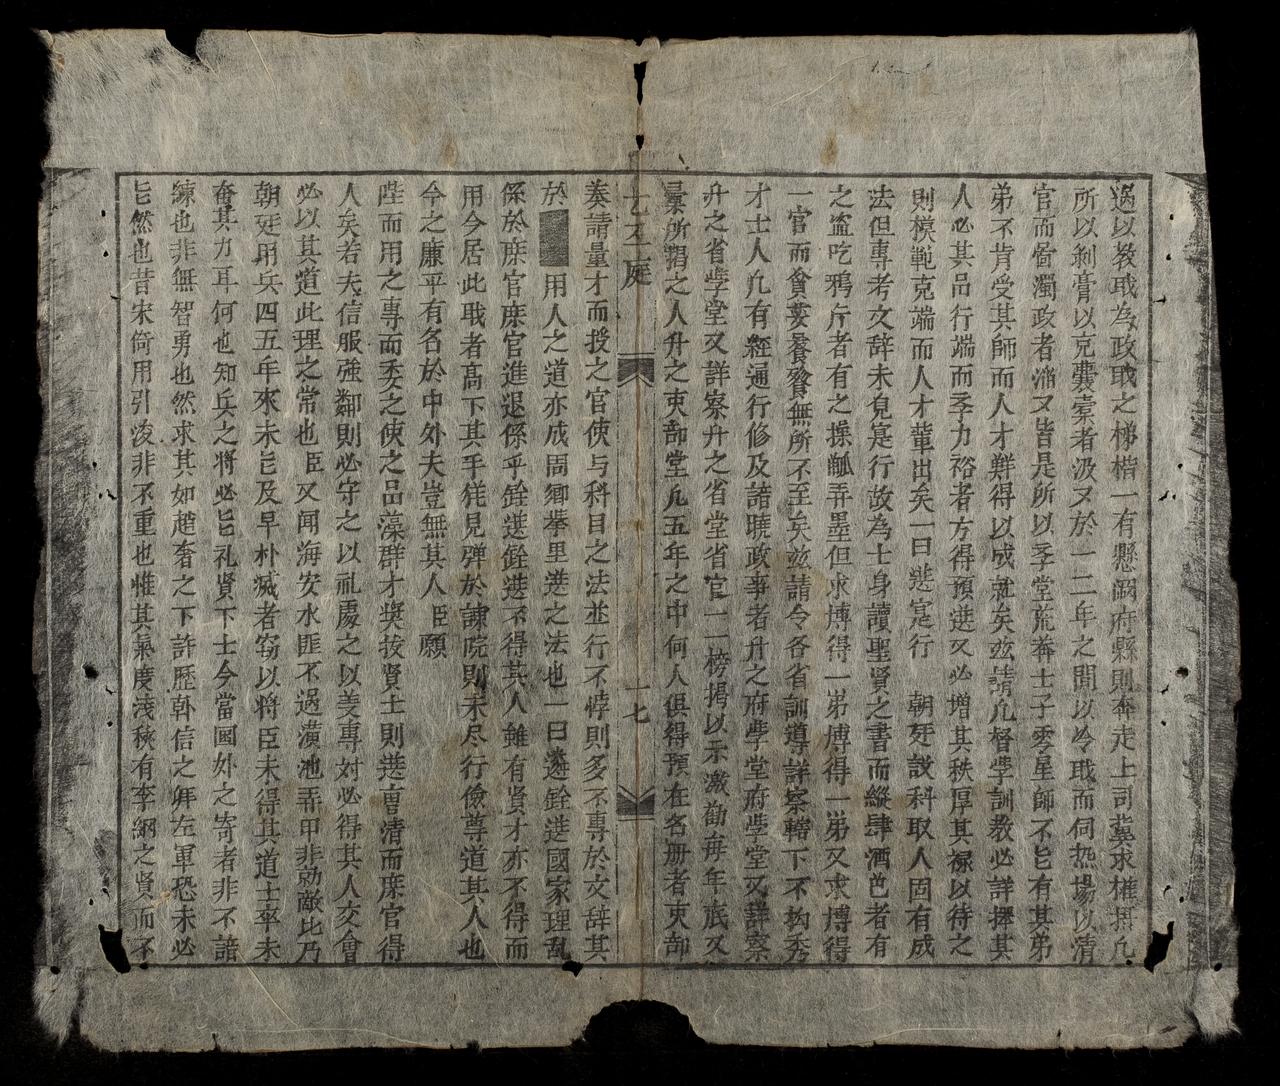 過以教職為政職之梯楷一有懸闕府縣則奔走上司冀求權摂凢
所以剥膏以克囊槖者汲又於一二年之間以冷職而伺热場以清
官而畨濁政者滔又皆是所以孝堂荒莽士子零星師不㫖有其弟
弟不肯受其師而人才難得以成就矣兹請凢督學訓教必詳擇其
人必其品行端而孝力裕者方得預選又必增其秩厚其禄以待之
則模範克端而人才輩出矣一曰選寔行 朝廷設科取人固有成
法但專考文辞未見寔行故為士身讀聖賢之書而縱肆酒色者有
之盗吃鴉片者有之操觚弄墨但求博得一弟博得一弟又求博得
一官而貪婪饕餮無所不至矣兹請令各省訓導詳察轄下不拘秀
才士人凢有經通行修及諳曉政事者升之府學堂府學堂又詳察
升之省學堂又詳察升之省堂省官一一榜掲以示激勧每年底又
彙所掲之人升之吏部堂凢五年之中何人俱得預在名册者吏部
七五庭 一七
奏請量才而授之官使与科目之法並行不悖則多不專於文辞其
於 用人之道亦成周鄉挙里選之法也一曰遴銓選國家理乱
係於庶官庶官進退係乎銓選銓選不得其人雖有賢才亦不得而
用今居此職者髙下其手徃見弹於諫院則未尽行儉尊道其人也
今之廉平有名於中外夫豈無其人臣願
陛而用之專而委之使之品藻群才奬拔賢士則選曺清而庶官得
人矣若夫信服強鄰則必守之以礼處之以义專対必得其人交會
必以其道此理之常也臣又闻海安水匪不過潢池弄甲非勍敵比乃
朝廷用兵四五年來未㫖及早朴滅者窃以将臣未得其道士卒未
奮其力耳何也知兵之将必㫖礼賢下士今當閫外之寄者非不諳
練也非無智勇也然求其如趙奢之下許歷韩信之拜左軍恐未必
㫖然也昔宋筒用引凌非不重也惟其氣度淺狹有李綱之賢而不